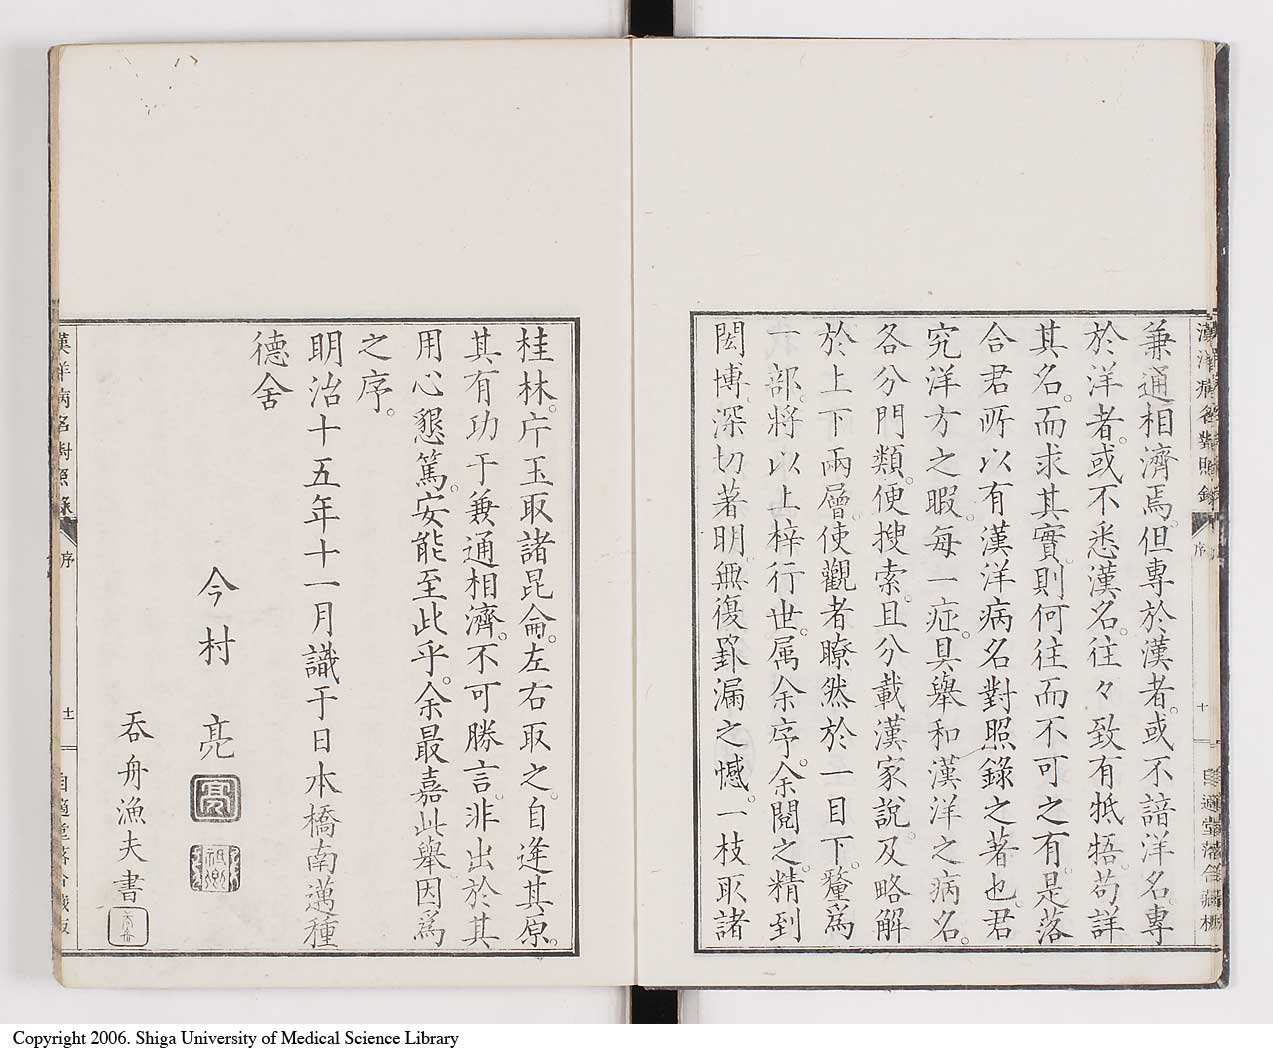 漢洋病名對照錄
序
十
自適堂落合藏板
兼通相濟焉。但專於漢者。或不諳洋名。專
於洋者。或不悉漢名。往々致有牴牾。苟詳
其名。而求其實。則何往而不可之有。是落
合君所以有漢洋病名對照錄之著也。君
究洋方之暇。每一症。具舉和漢洋之病名。
各分門類。便搜索。且分載漢家說。及略解
於上下兩層。使觀者瞭然於一目下。釐為
一部。將以上梓行世。属余序。余閱之。精到
閎博。深切著明。無復罅漏之憾。一枝取諸
桂林。片玉取諸昆侖。左右取之。自逢其原。
其有功于兼通相濟。不可勝言。非出於其
用心懇篤。安能至此乎。余最嘉此舉。因為
之序。
明治十五年十一月識于日本橋南邁種
德舍
今村亮
亮
祗卿
吞舟漁夫書
漢洋病名對照錄
序
十一
自適堂落合藏板
Copyright 2006. Shiga University of Medical Science Library